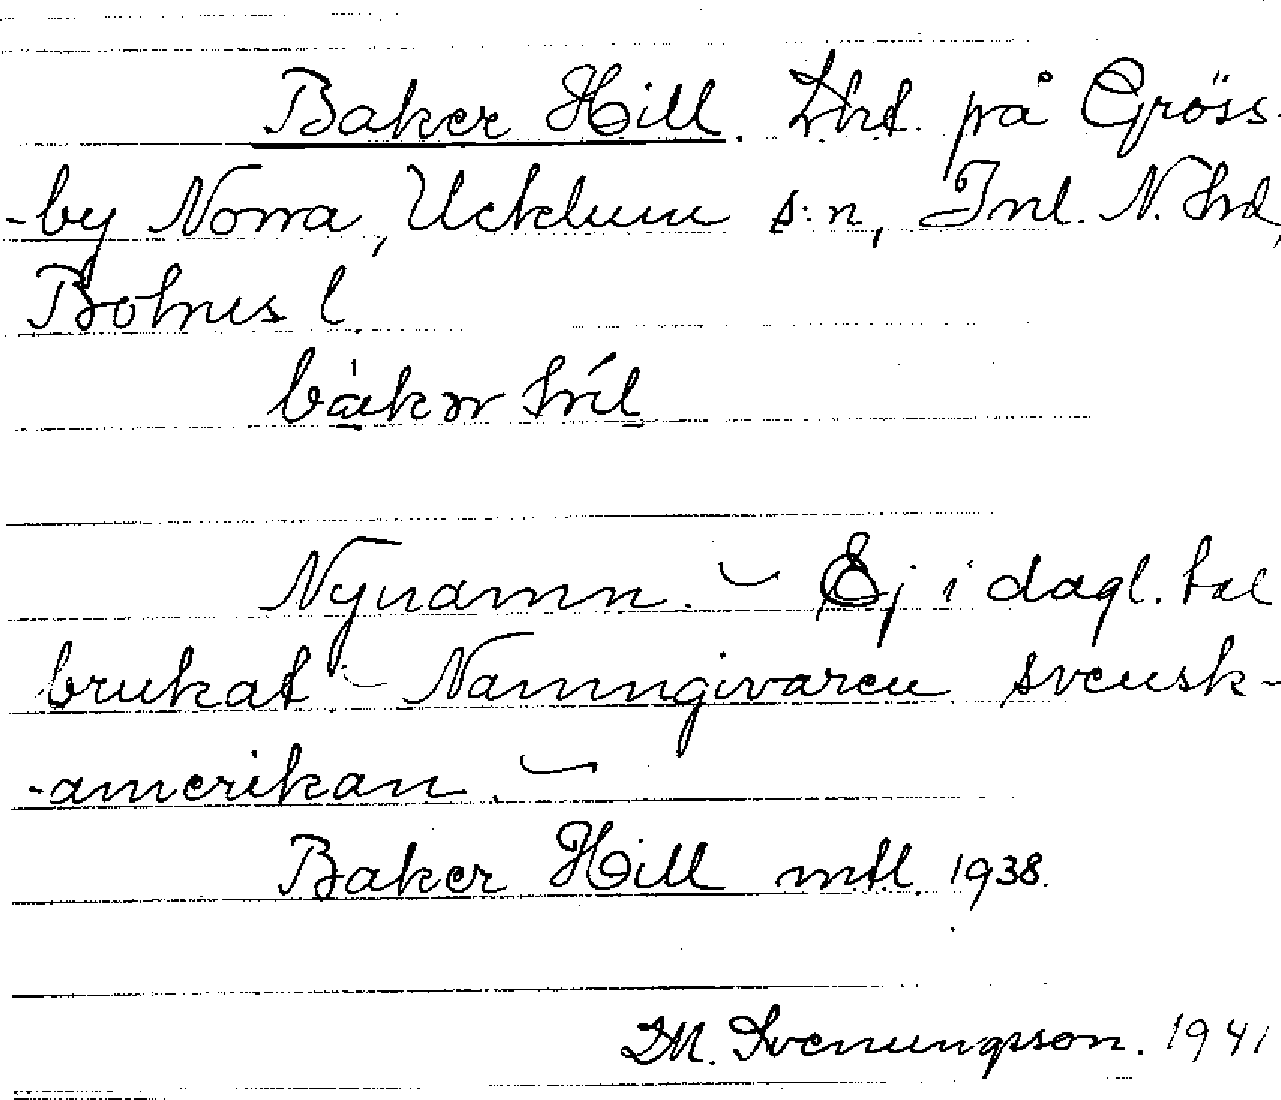 Baker Hill. Lht. på Gröss-
-by Norra, Ucklum s:n, Inl. N. hd,
Bohus l.
bàkər híl
Nynamn. – Ej i dagl. tal
brukat – Namngivaren svensk-
-amerikan. –
Baker Hill mtl. 1938.
D.M. Svenungsson. 1941